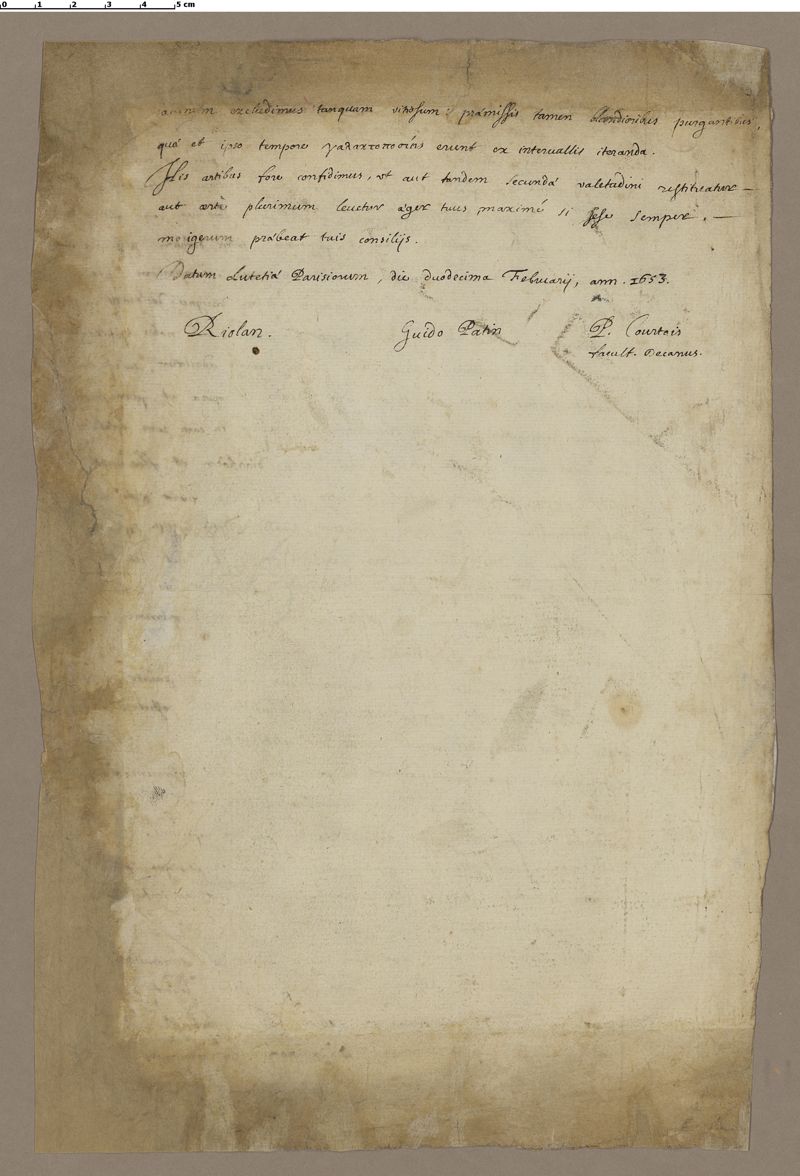 0 1 2 3 4 5 cm
excludimus tanquam vitiosum: præmissis tamen blandioribus purgantibus,
quæ et ipso tempore γαλακτοποσίας erunt ex intervallis iteranda.
His artibus fore confidimus, ut aut tandem secundæ valetudini restituatur
aut certè plurimum levetur æger tuus maximè si sese semper
morigerum præbeat tuis consilijs.
Datum Lutetiæ Parisiorum, die duodecima Februarij, ann. 1653.
Riolan. Guido Patin P. Courtois
facult. Decanus.